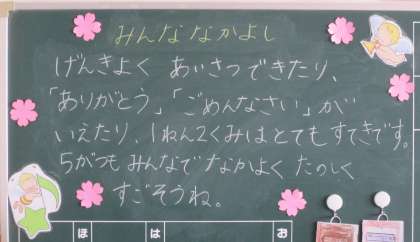 みんななかよし
げんきよく あいさつできたり、
「ありがとう」「ごめんなさい」が
いえたり、1ねん2くみはとてもすてきです。
5がつも みんなで なかよく たのしく
すごそうね。
ほ は お